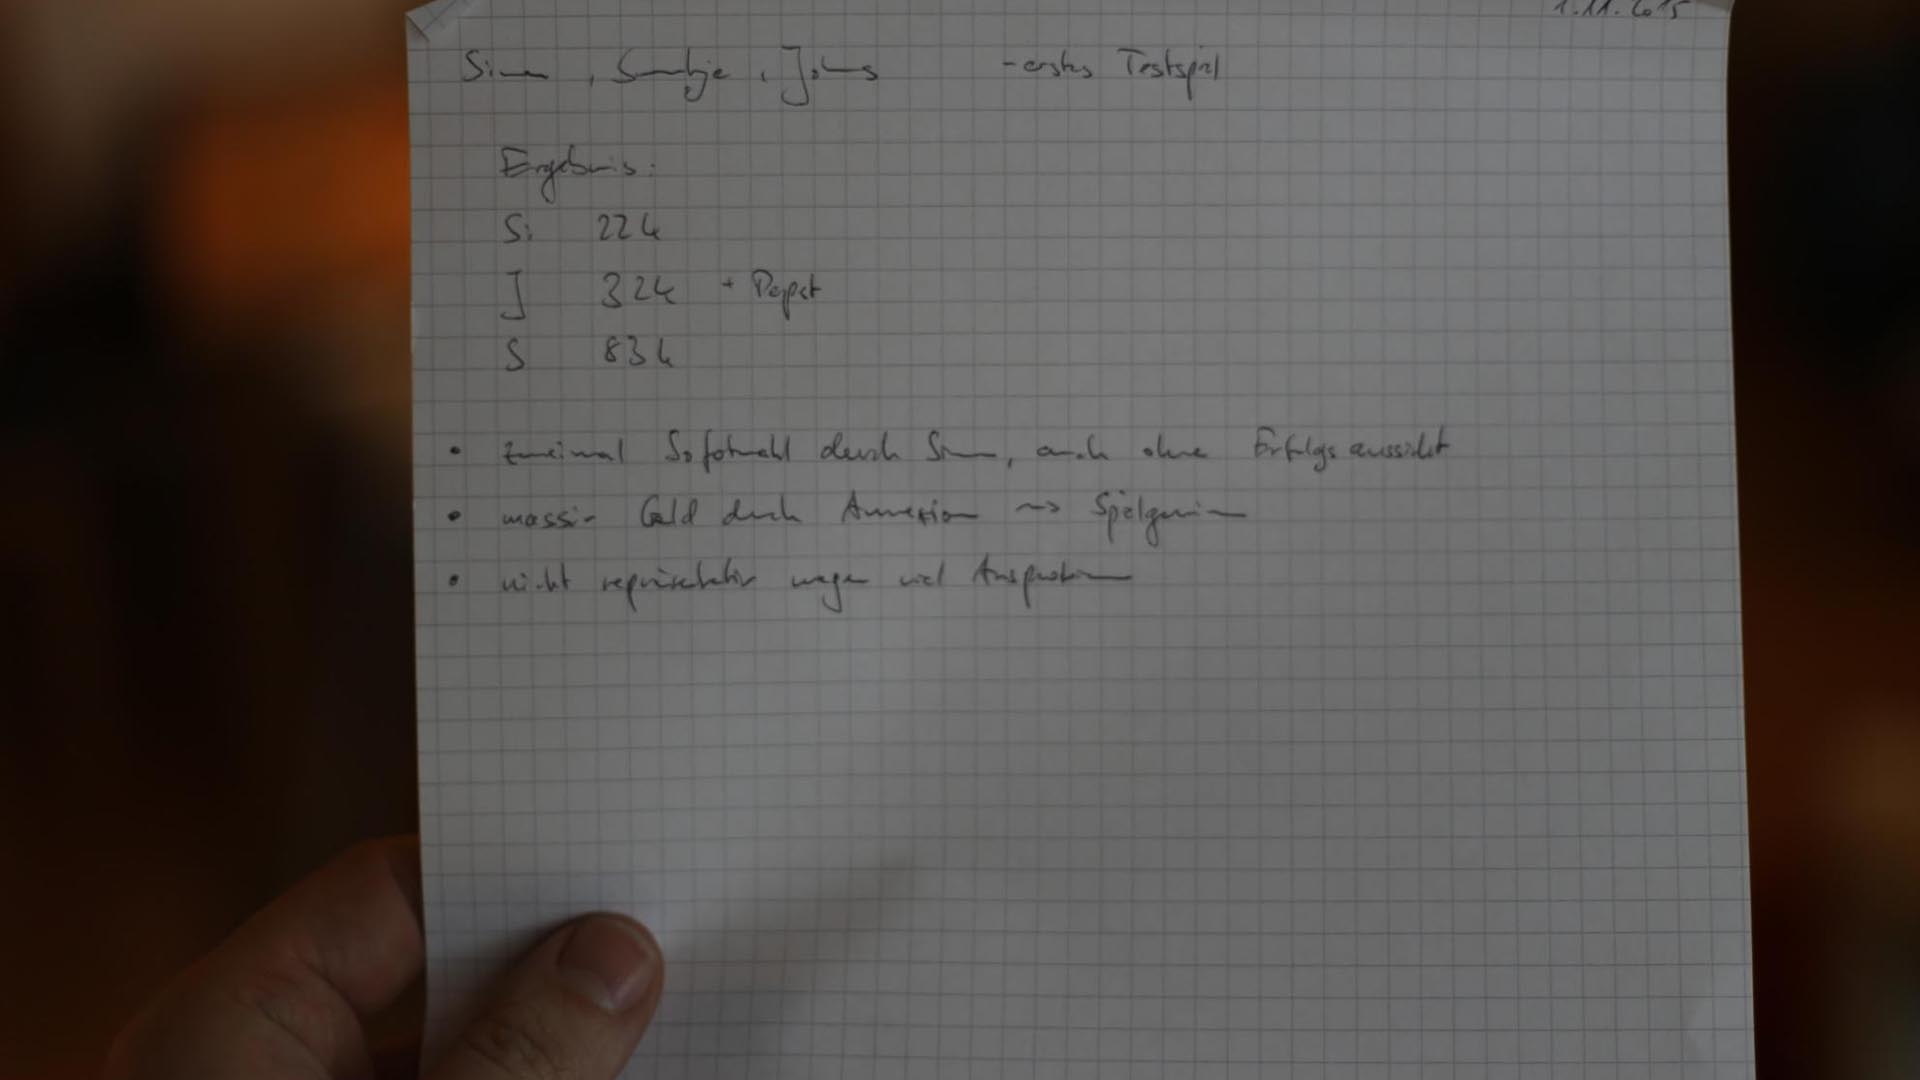 1.11.2015
Simon, Svantje, Johannes - erstes Testspiel
Ergebnis:
Si 224
J 324 + Papst
S 834
• zweimal Sofortwahl durch Simon, auch ohne Erfolgsaussicht
• massiv Geld durch Annexion ~> Spielgewinn
• nicht repräsentativ wegen viel Ausprobieren